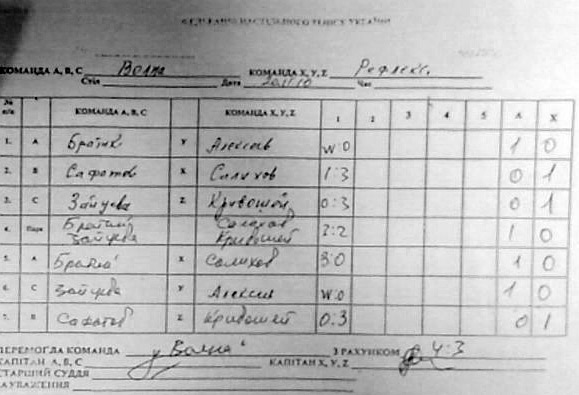 ФЕДЕРАЦІЯ НАСТІЛЬНОГО ТЕНІСУ УКРАЇНИ
КОМАНДА A, B, C Волна КОМАНДА X, Y, Z Рефлекс
Стіл Дата Час
№ п/п КОМАНДА A, B, C КОМАНДА X, Y, Z 1 2 3 4 5 A X
1. A Y Алексеев W:0 1 0
2. B X Салихов 1:3 0 1
3. C Зайцева Z Кривошей 0:3 0 1
4. Пари Салихов
Зайцева Кривошей 3:2 1 0
5. A X Салихов 3:0 1 0
6. C Зайцева Y Алексеев W:0 1 0
7. B Z Кривошей 0:3 0 1
ПЕРЕМОГЛА КОМАНДА "Волна" З РАХУНКОМ 4:3
КАПІТАН A, B, C КАПІТАН X, Y, Z
СТАРШИЙ СУДДЯ
ЗАУВАЖЕННЯ